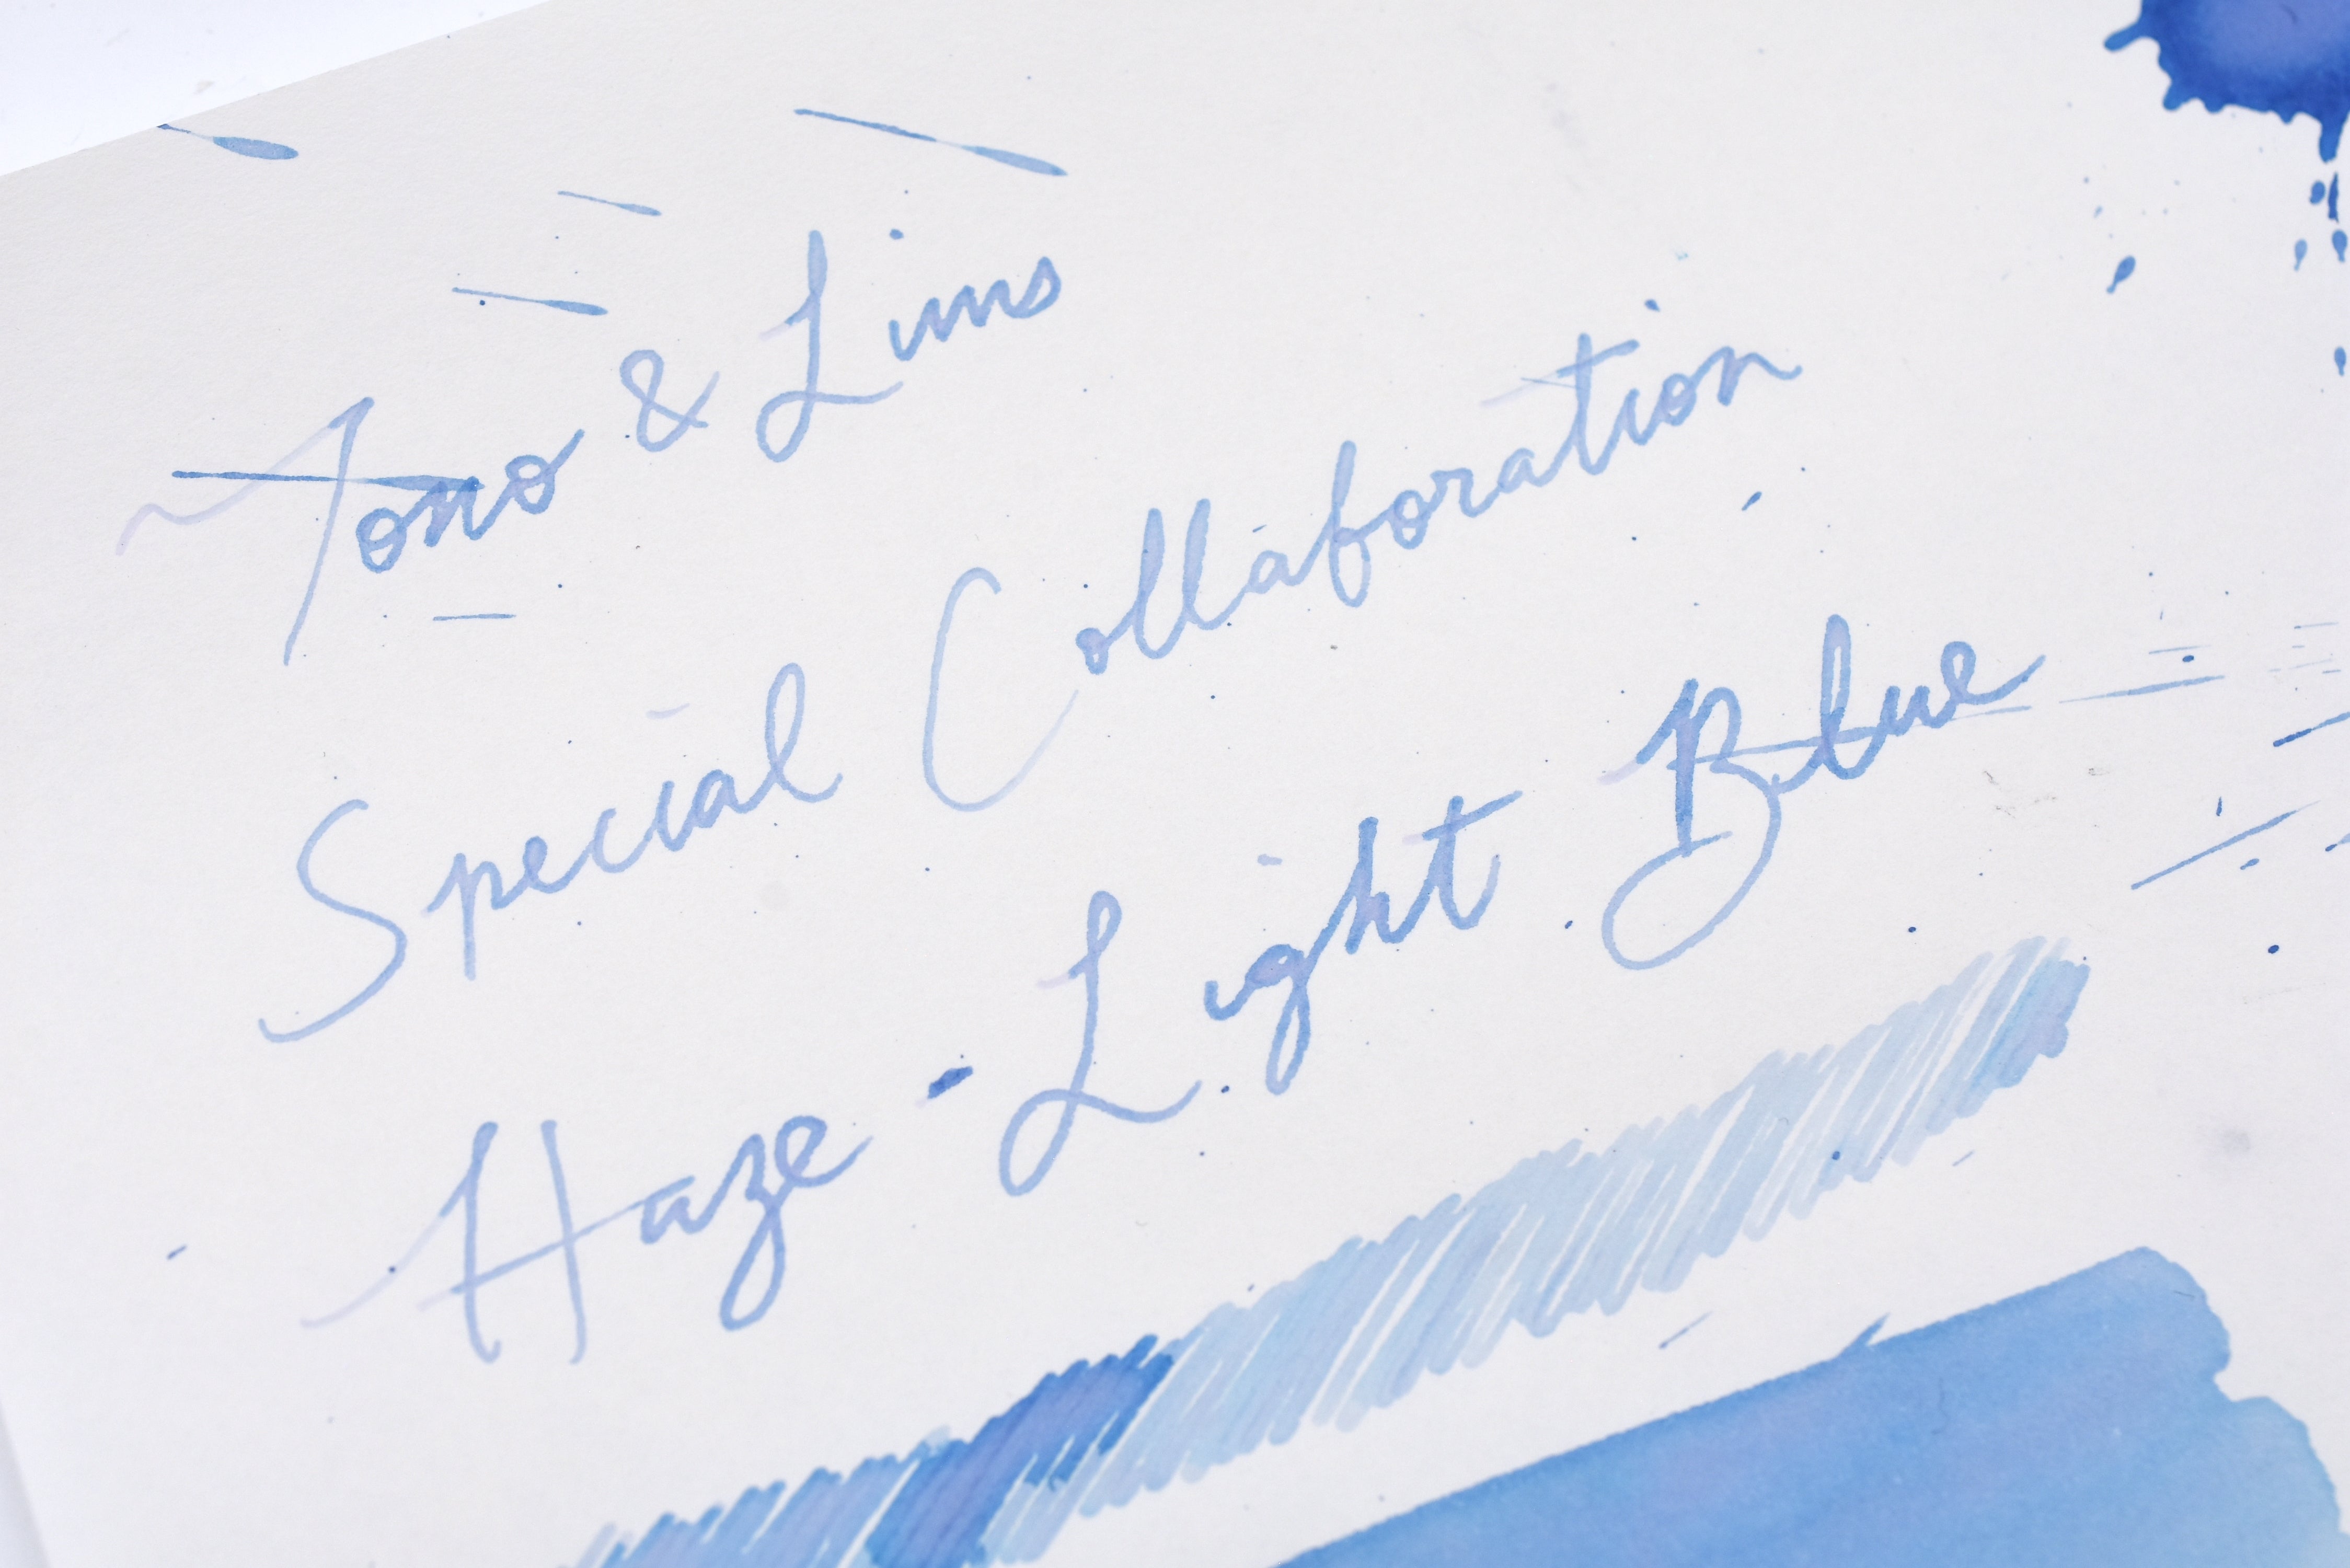 Tono & Lims
Special Collaboration
Haze - Light Blue